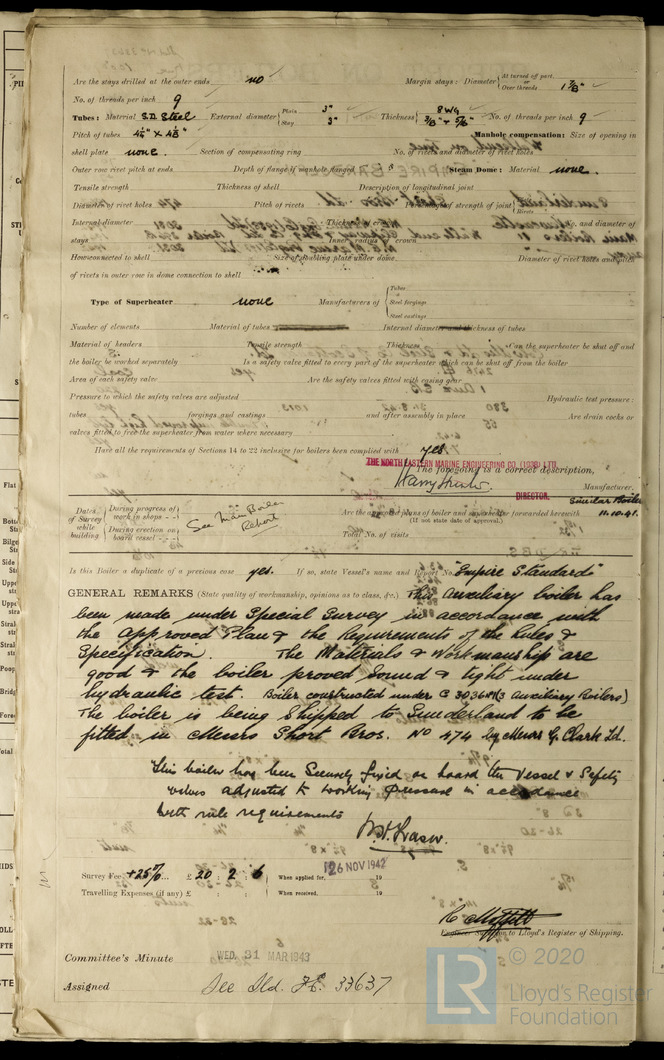 Are the stays drilled at the outer ends no Margin stays: Diameter At turned off part or Over threads 1 7/8"
No. of threads per inch 9
Tubes: Material S.D Steel External diameter Plain 3" Stay 3" Thickness 8 WG 3/8" & 5/16" No. of threads per inch 9
Pitch of tubes 4¼" X 4⅛" Manhole compensation: Size of opening in
shell plate none. Section of compensating ring No. of rivets and diameter of rivet holes
Outer row rivet pitch at ends Depth of flange if manhole flanged Steam Dome: Material none.
Tensile strength Thickness of shell Description of longitudinal joint
Diameter of rivet holes Pitch of rivets Percentage of strength of joint Rivets
Internal diameter Thickness of crown No. and diameter of
stays Inner radius of crown
How connected to shell Size of doubling plate under dome Diameter of rivet holes and pitch
of rivets in outer row in dome connection to shell
Type of Superheater none Manufacturers of Tubes Steel forgings Steel castings
Number of elements Material of tubes Internal diameter and thickness of tubes
Material of headers Tensile strength Thickness Can the superheater be shut off and
the boiler be worked separately Is a safety valve fitted to every part of the superheater which can be shut off from the boiler
Area of each safety valve Are the safety valves fitted with easing gear
Pressure to which the safety valves are adjusted Hydraulic test pressure:
tubes forgings and castings and after assembly in place Are drain cocks or
valves fitted to free the superheater from water where necessary
Have all the requirements of Sections 14 to 22 inclusive for boilers been complied with yes.
THE NORTH EASTERN MARINE ENGINEERING CO. (1938) LTD.
The foregoing is a correct description,
Manufacturer.
DIRECTOR.
Dates of Survey while building During progress of work in shops - - During erection on board vessel - - - See Main Boiler Report Are the approved plans of boiler and superheater forwarded herewith Similar Boiler 11.10.41.
(If not state date of approval.)
Total No. of visits
Is this Boiler a duplicate of a previous case yes. If so, state Vessel's name and Report No. "Empire Standard"
GENERAL REMARKS (State quality of workmanship, opinions as to class, &c.) This Auxiliary boiler has
been made under Special Survey in accordance with
the approved Plan & the Requirements of the Rules &
Specification. The Materials & Workmanship are
good & the boiler proved Sound & tight under
hydraulic test. Boiler constructed under C 3036 (3 Auxiliary Boilers)
The boiler is being Shipped to Sunderland to be
fitted in Messrs Short Bros. No 474 by Messrs G. Clark Ltd.
This boiler has been Securely fixed on board the Vessel & Safety
valves adjusted to working pressure in accordance
with rule requirements
Survey Fee +25% £ 20 : 2 : 6 When applied for, 26 NOV 1942 19
Travelling Expenses (if any) £ : : When received, 19
Engineer Surveyor to Lloyd's Register of Shipping.
Committee's Minute WED. 31 MAR 1943
Assigned See Sld. F.E. 33637
LR © 2020
Lloyd's Register
Foundation